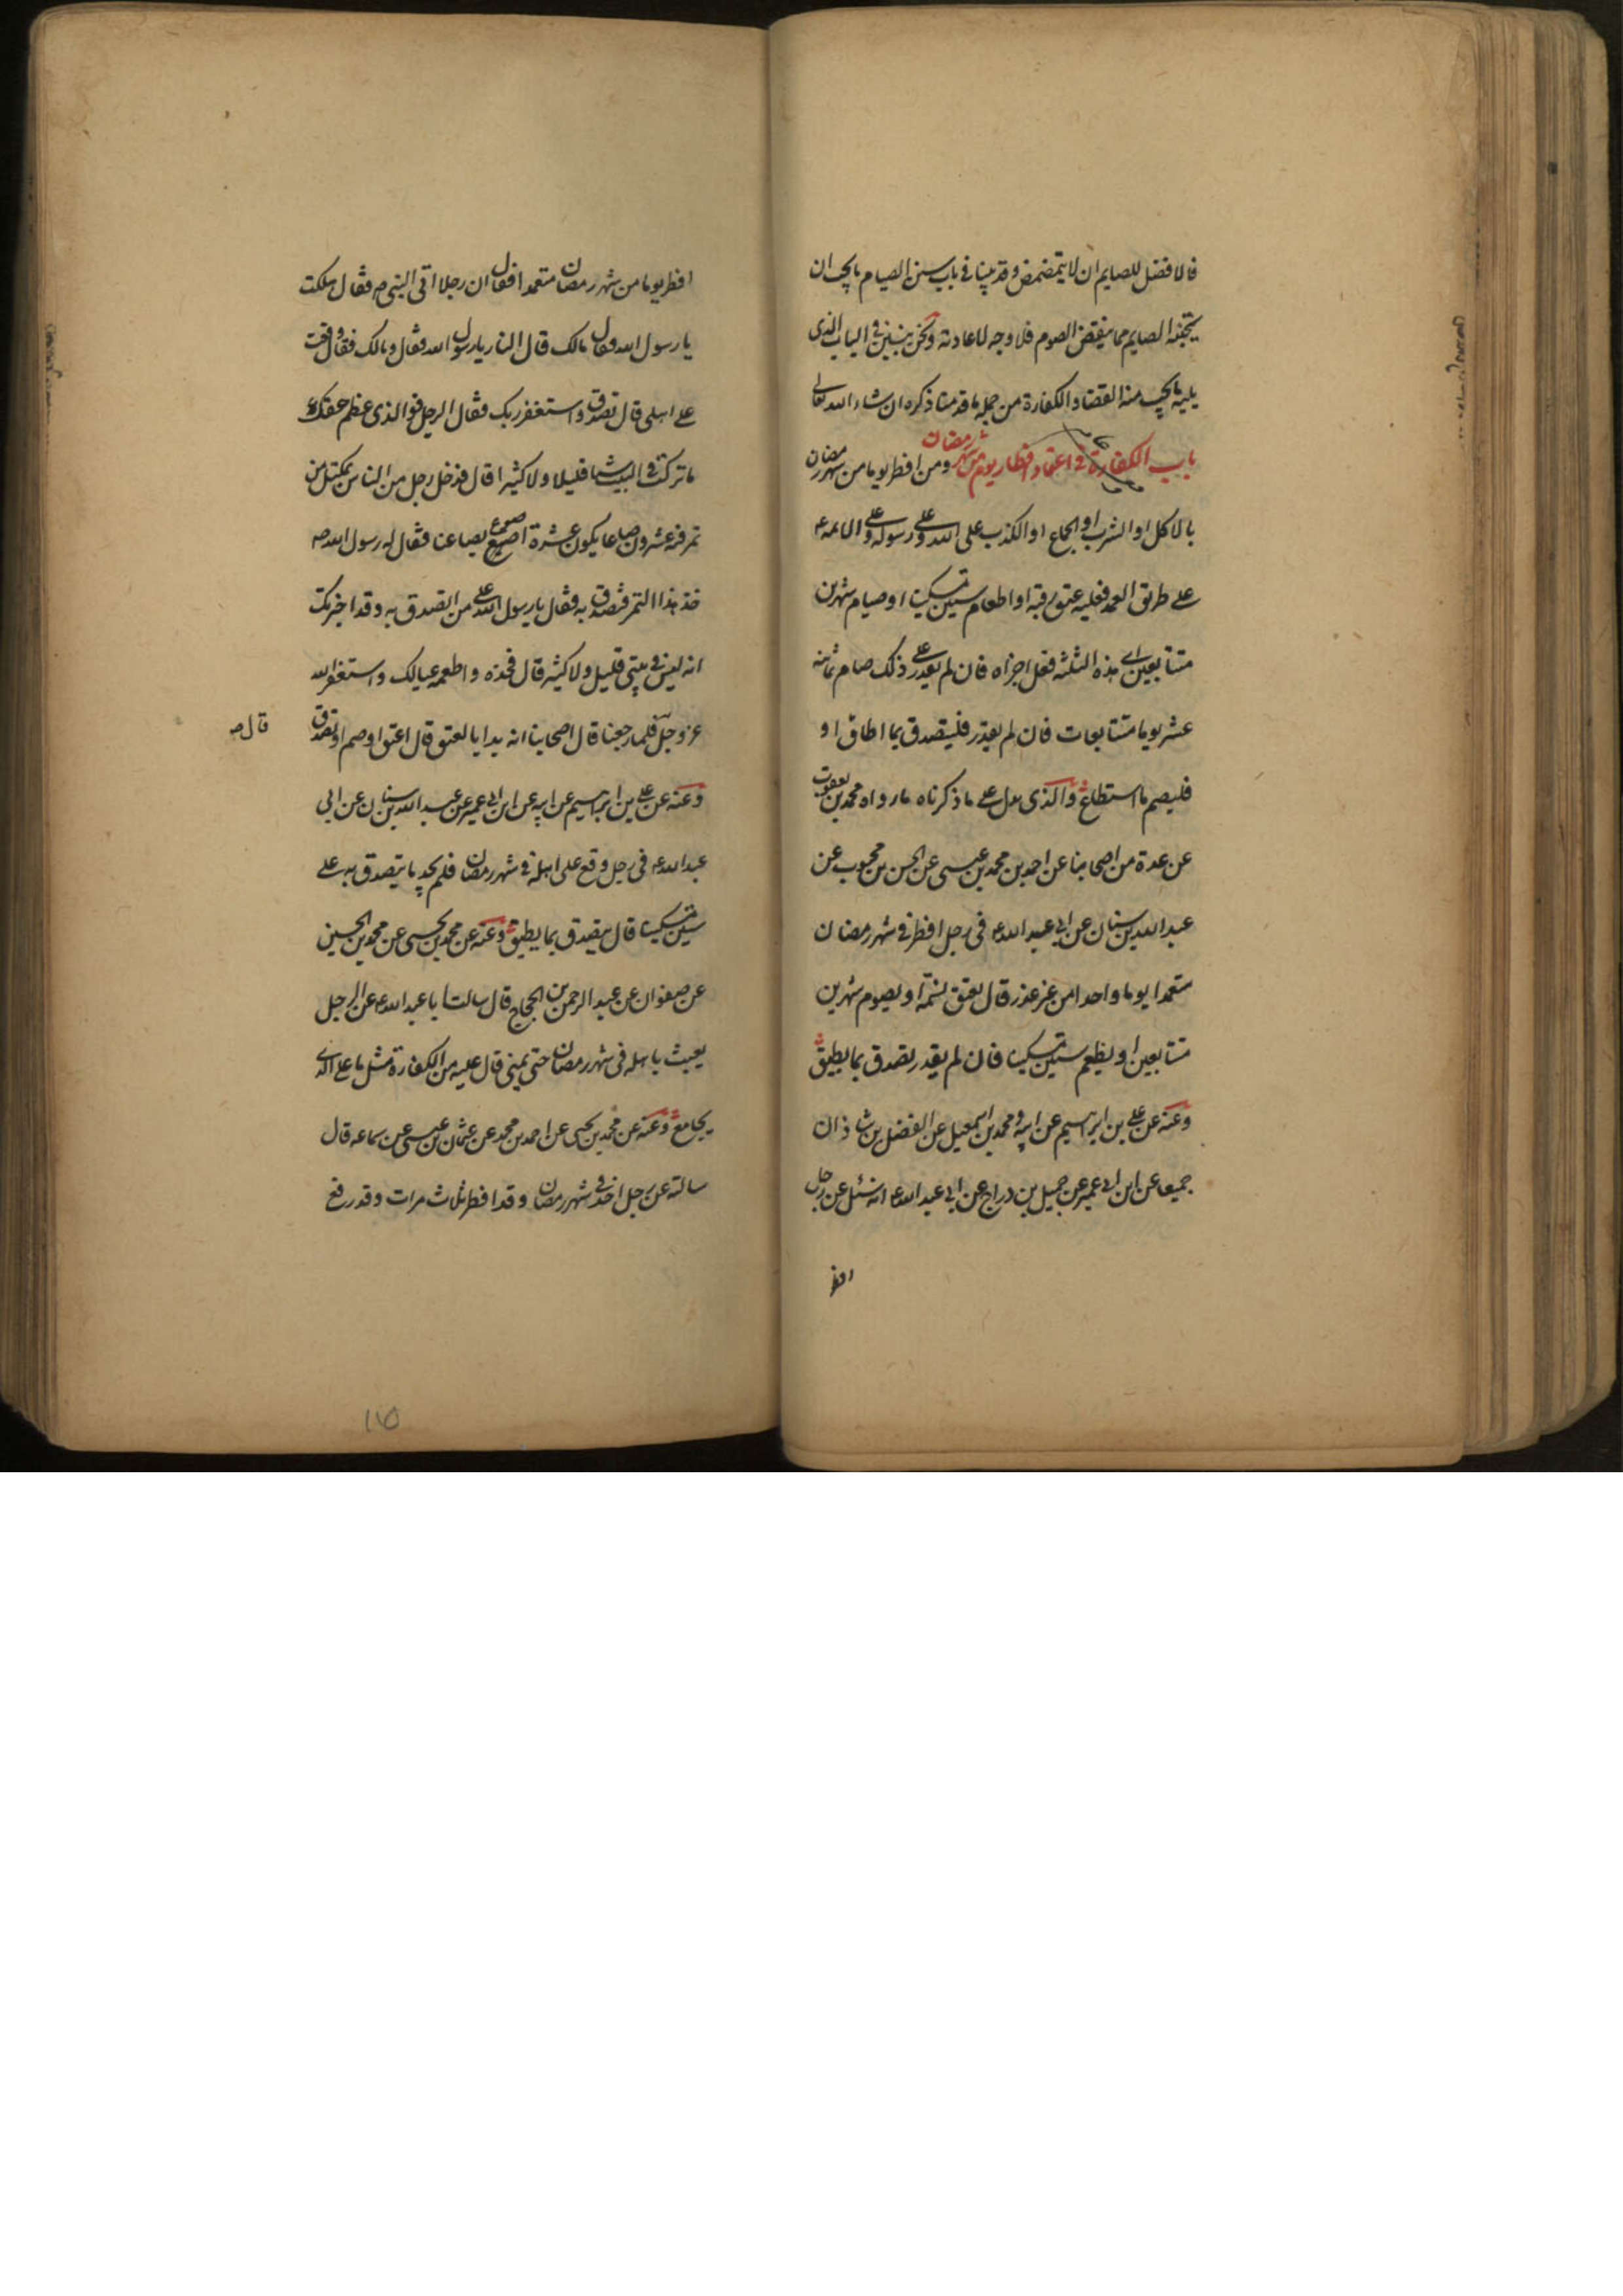 فالافضل للصايم ان لا يتمضمض وقد بينا في باب سنن الصيام ما يجب ان
يتجنبه الصايم مما ينقض الصوم فلا وجه لاعادته ونحن نبين في الباب الذى
يليه ما يجب منه القضاء والكفارة من جملة ما قدمنا ذكره ان شاء الله تعالى
باب الكفارة في اعتماد افطار يوم من شهر رمضان ومن افطر يوما من شهر رمضان
بالاكل او الشرب او الجماع او الكذب على الله وعلى رسوله وعلى الائمه ع
على طريق العمد فعليه عتق رقبه او اطعام ستين مسكينا او صيام شهرين
متتابعين اى هذه الثلثه فعل اجزاه فان لم يقدر على ذلك صام ثمانيه
عشر يوما متتابعات فان لم يقدر فليتصدق بما اطاق او
فليصم ما استطاع والذى يدل على ما ذكرناه ما رواه محمد بن يعقوب
عن عدة من اصحابنا عن احمد بن محمد بن عيسى عن الحسن بن محبوب عن
عبد الله بن سنان عن ابى عبد الله ع فى رجل افطر في شهر رمضان
متعمدا يوما واحدا من غير عذر قال يعتق نسمة او يصوم شهرين
متتابعين او يطعم ستين مسكينا فان لم يقدر تصدق بما يطيق
وعنه عن على بن ابراهيم عن ابيه ومحمد بن اسمعيل عن الفضل بن شاذان
جميعا عن ابن ابى عمير عن جميل بن دراج عن ابى عبد الله ع انه سئل عن رجل
افطر
افطر يوما من شهر رمضان متعمدا فقال ان رجلا اتى النبى ص فقال هلكت
يا رسول الله فقال مالك قال النار يا رسول الله فقال ومالك فقال وقعت
على اهلى قال تصدق واستغفر ربك فقال الرجل فوالذى عظم حقك
ما تركت في البيت شيئا قليلا ولا كثيرا قال فدخل رجل من الناس بمكتل من
تمر فيه عشرون صاعا يكون عشرة اصوع بصاعنا فقال له رسول الله ص
خذ هذا التمر فتصدق به فقال يا رسول الله على من اتصدق به وقد اخبرتك
انه ليس في بيتى قليل ولا كثير قال فخذه واطعمه عيالك واستغفر الله
عز وجل قال فلما رجعنا قال اصحابنا انه بدا بالعتق قال اعتق او صم او تصدق
قال ص
وعنه عن على بن ابراهيم عن ابيه عن ابن ابى عمير عن عبد الله بن سنان عن ابى
عبد الله ع فى رجل وقع على اهله فى شهر رمضان فلم يجد ما يتصدق به على
ستين مسكينا قال يتصدق بما يطيق وعنه عن محمد بن يحيى عن محمد بن الحسين
عن صفوان عن عبد الرحمن بن الحجاج قال سالت ابا عبد الله ع عن الرجل
يعبث باهله فى شهر رمضان حتى يمنى قال عليه من الكفارة مثل ما على الذى
يجامع وعنه عن محمد بن يحيى عن احمد بن محمد عن عثمان بن عيسى عن سماعه قال
سالته عن رجل اخذ في شهر رمضان وقد افطر ثلاث مرات وقد رفع